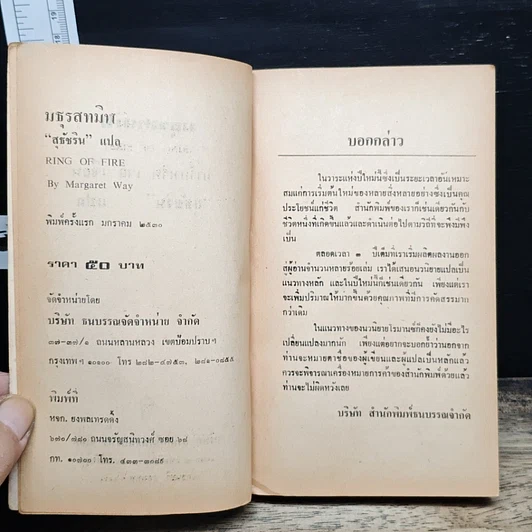 มธุรสทมิฬ
"สุธัชริน" แปล
RING OF FIRE
By Margaret Way
พิมพ์ครั้งแรก มกราคม ๒๕๓๐
ราคา ๕๐ บาท
จัดจำหน่ายโดย
บริษัท ธนบรรณจัดจำหน่าย จำกัด
๓๕-๓๗/๑ ถนนหลานหลวง เขตป้อมปราบฯ
กรุงเทพฯ ๑๐๑๐๐ โทร ๒๘๒-๔๗๕๓, ๒๘๑-๐๘๕๕
พิมพ์ที่
หจก. ยงพลเทรดดิ้ง
๖๗๐/๗๘๑ ถนนจรัญสนิทวงศ์ ซอย ๖๘
กท. ๑๐๗๐๐ โทร.
บอกกล่าว
ในวาระแห่งปีใหม่นี้ซึ่งเป็นระยะเวลาอันเหมาะ
สมแก่การเริ่มต้นใหม่ของหลายสิ่งหลายอย่าง ซึ่งเป็นคุณ
ประโยชน์แก่ชีวิต สำนักพิมพ์ของเราก็เช่นเดียวกันกับ
ชีวิตหนึ่งที่เกิดขึ้นแล้วและดำเนินต่อไปตามวิถีที่จะพึงมีพึง
เป็น
ตลอดเวลา ๑ ปีเต็มที่เราเริ่มผลิตผลงานออก
สู่ผู้อ่านจำนวนหลายร้อยเล่ม เราได้เสนอนวนิยายแปลเป็น
แนวทางหลัก และในปีใหม่นี้ก็เช่นเดียวกัน เพียงแต่เรา
จะเพิ่มปริมาณให้มากขึ้นด้วยคุณภาพที่มีการคัดสรรมาก
กว่าเดิม
ในแนวทางของนวนิยายโรมานซ์ก็คงยังไม่มีอะไร
เปลี่ยนแปลงมากนัก เพียงแต่อยากจะบอกย้ำว่านอกจาก
ท่านจะหมายตาชื่อของผู้เขียนและผู้แปลเป็นหลักแล้ว
ควรจะพิจารณาเครื่องหมายการค้าของสำนักพิมพ์ด้วยแล้ว
ท่านจะไม่ผิดหวังเลย
บริษัท สำนักพิมพ์ธนบรรณจำกัด